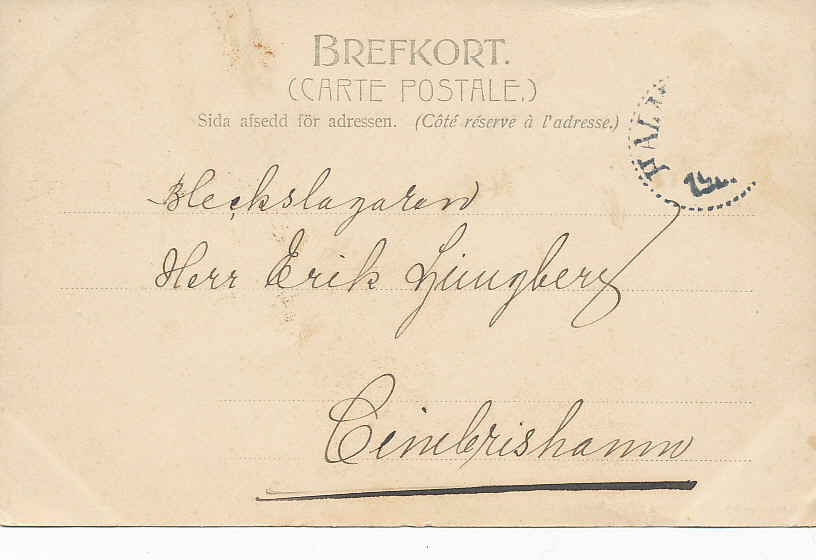 BREFKORT.
(CARTE POSTALE.)
Sida afsedd för adressen. (Côté réserve à l'adresse.)
Bleckslagaren
Herr Erik Ljungberg
Cimbrishamn